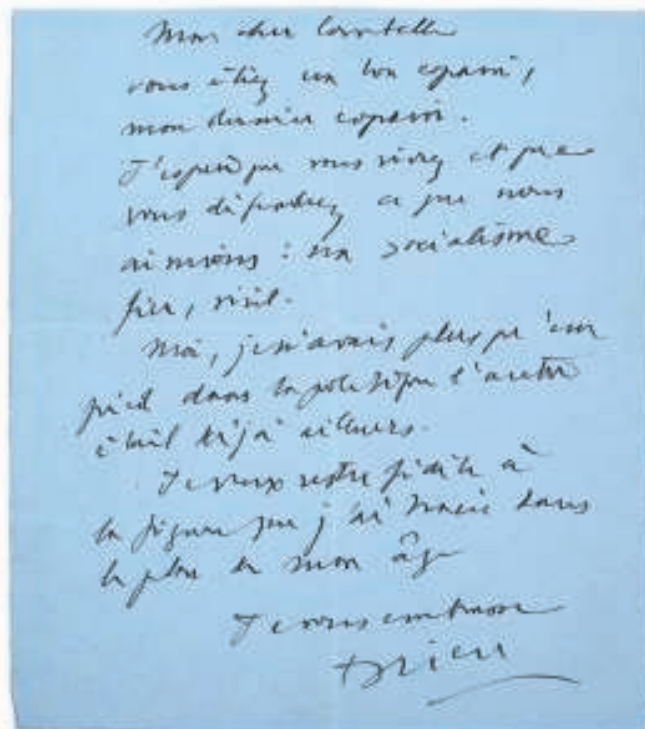 Mon cher Combelle
vous étiez un bon copain,
mon dernier copain.
J'espère que vous vivrez et que
vous défendrez ce que nous
aimions : un socialisme
fier, viril.
Moi, je n'avais plus qu'un
pied dans la politique l'autre
était déjà ailleurs.
Je veux rester fidèle à
la figure que j'ai tracée dans
le plus de mon âge
Je vous embrasse
Drieu